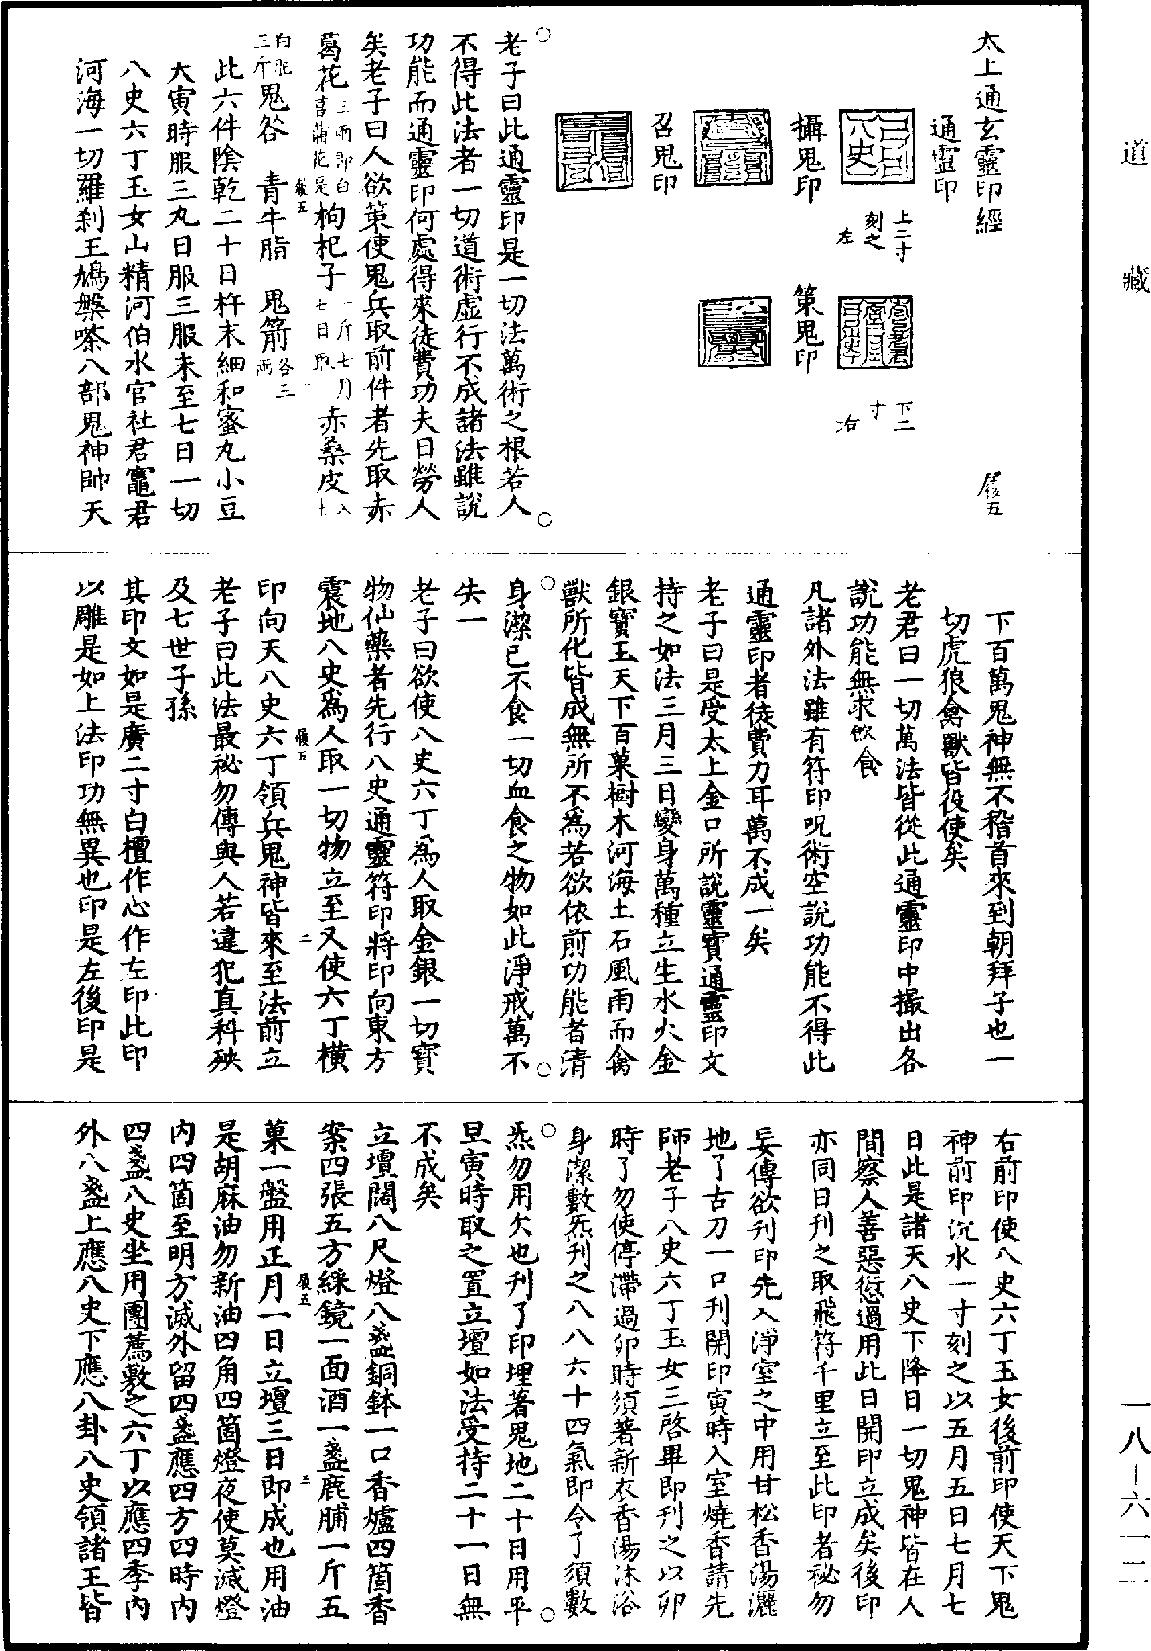 道藏
一八－六一二
太上通玄靈印經
通靈印
上二寸
刻之
左
下二
寸
右
攝鬼印
策鬼印
召鬼印
老子曰此通靈印是一切法萬術之根若人
不得此法者一切道術虛行不成諸法雖說
功能而通靈印何處得來徒費功夫日勞人
矣老子曰人欲策使鬼兵取前件者先取赤
葛花三兩即白菖蒲花是枸杞子一斤七月七日取赤桑皮
三斤鬼谷青牛脂鬼箭各三兩
此六件陰乾二十日杵末細和蜜丸小豆
大寅時服三丸日服三服未至七日一切
八史六丁玉女山精河伯水官社君竈君
河海一切羅剎王鳩槃嗏八部鬼神帥天
下百萬鬼神無不稽首來到朝拜子也一
切虎狼禽獸皆役使矣
老君曰一切萬法皆從此通靈印中撮出各
說功能無求飲食
凡諸外法雖有符印呪術空說功能不得此
通靈印者徒費力耳萬不成一矣
老子曰是受太上金口所說靈寶通靈印文
持之如法三月三日變身萬種立生水火金
銀寶玉天下百菓樹木河海土石風雨而禽
獸所化皆成無所不為若欲依前功能者清
身潔己不食一切血食之物如此淨戒萬不
失一
老子曰欲使八史六丁為人取金銀一切寶
物仙藥者先行八史通靈符印將印向東方
震地八史為人取一切物立至又使六丁橫
印向天八史六丁領兵鬼神皆來至法前立
老子曰此法最祕勿傳與人若違犯真科殃
及七世子孫
其印文如是廣二寸白檀作心作左印此印
以雕是如上法印功無異也印是左後印是
右前印使八史六丁玉女後前印使天下鬼
神前印沉水一寸刻之以五月五日七月七
日此是諸天八史下降日一切鬼神皆在人
間察人善惡愆過用此日開印立成矣後印
亦同日刊之取飛符千里立至此印者秘勿
妄傳欲刊印先入淨室之中用甘松香湯灑
地了古刀一口刊開印寅時入室燒香請先
師老子八史六丁玉女三啓畢即刊之以卯
時了勿使停滯過卯時須著新衣香湯沐浴
身潔數炁刊之八八六十四氣即令了須數
炁勿用欠也刊了印埋著鬼地二十日用平
旦寅時取之置立壇如法受持二十一日無
不成矣
立壇闊八尺燈八盞銅鉢一口香爐四箇香
案四張五方綵鏡一面酒一盞鹿脯一斤五
菓一盤用正月一日立壇三日即成也用油
是胡麻油勿新油四角四箇燈夜使莫滅燈
內四箇至明方滅外留四盞應四方四時內
四盞八史坐用團薦敷之六丁以應四季內
外八盞上應八史下應八卦八史領諸王皆